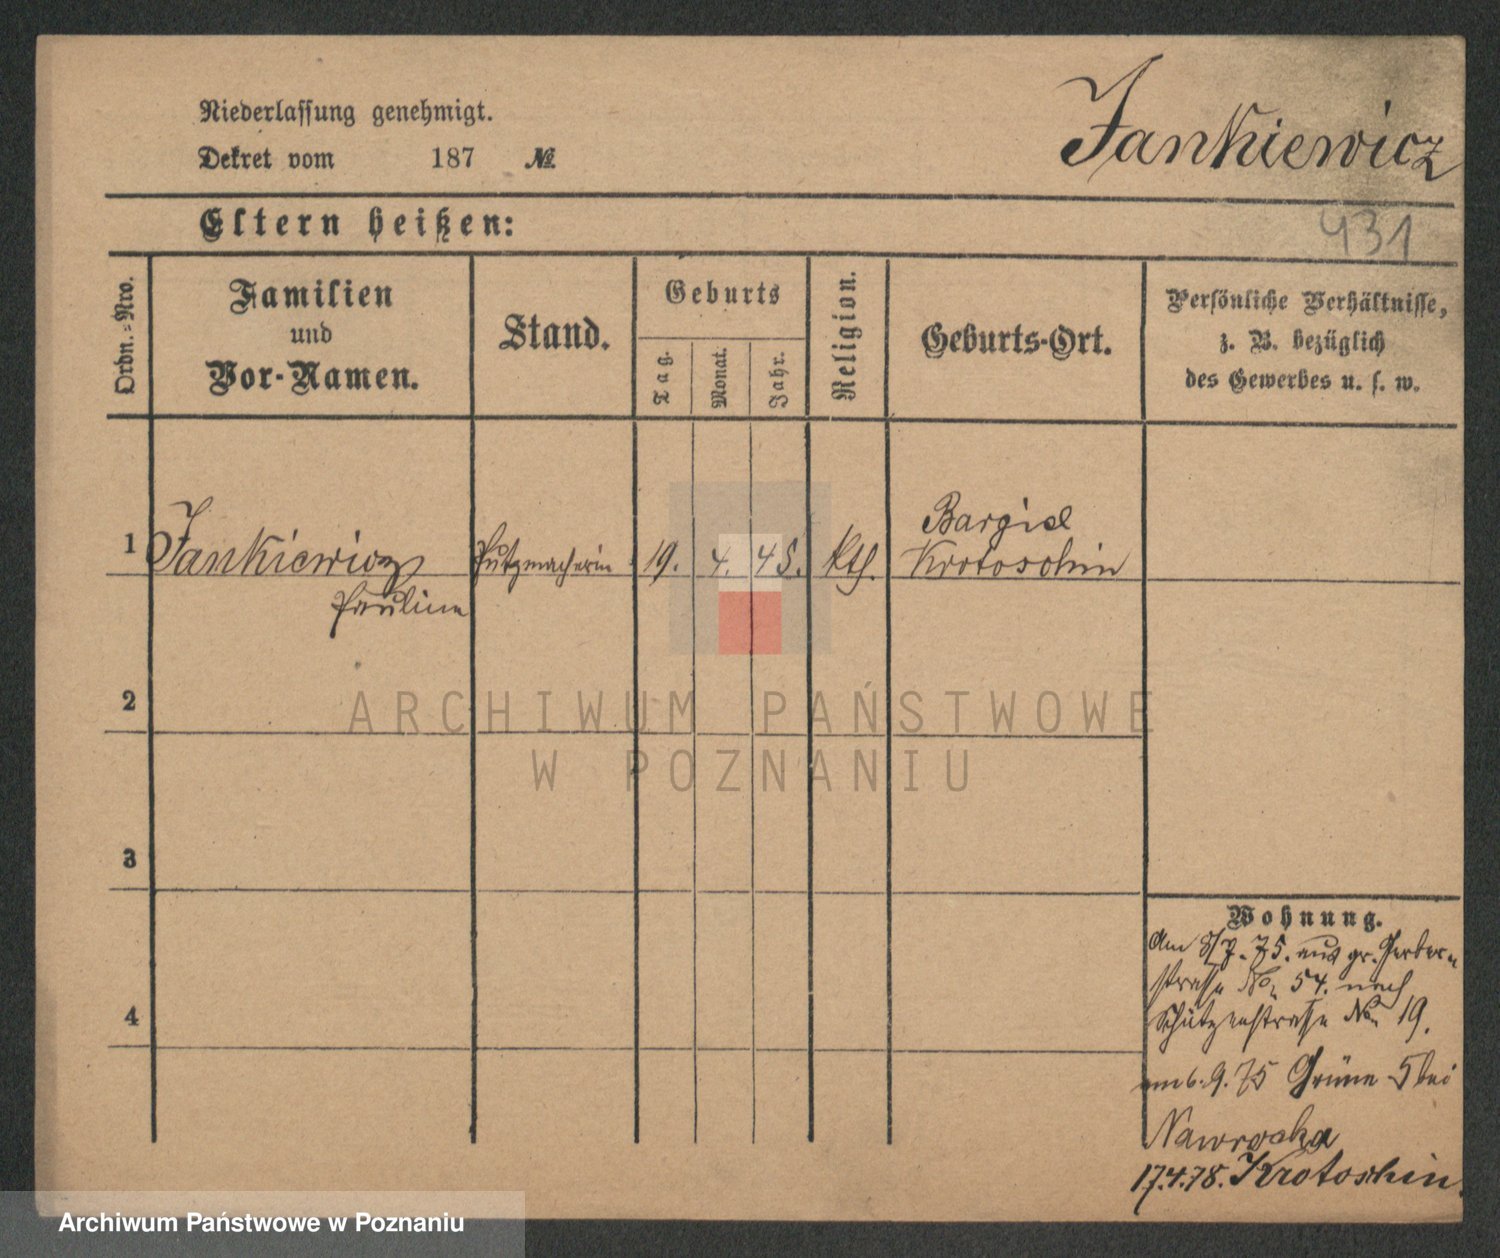 Niederlassung genehmigt.
Dekret vom 187 №
Jankiewicz
431
Eltern heißen:
Ordn.-Nro.
Familien
und
Vor-Namen.
Stand.
Geburts
Tag.
Monat.
Jahr.
Religion.
Geburts-Ort.
Persönliche Verhältnisse,
z. B. bezüglich
des Gewerbes u. s. w.
1 Jankiewicz Putzmacherin 19. 4. 45. kth. Bargiel
Krotoschin
Pauline
2
3
4
Wohnung.
Am 8/7. 75. aus gr. Gerber-
strasse No. 54. nach
Schützenstrasse No 19.
am 6. 9. 75 Grüne 5 bei
Nawrocka
17.4.78. Krotoschin.
ARCHIWUM PAŃSTWOWE
W POZNANIU
Archiwum Państwowe w Poznaniu